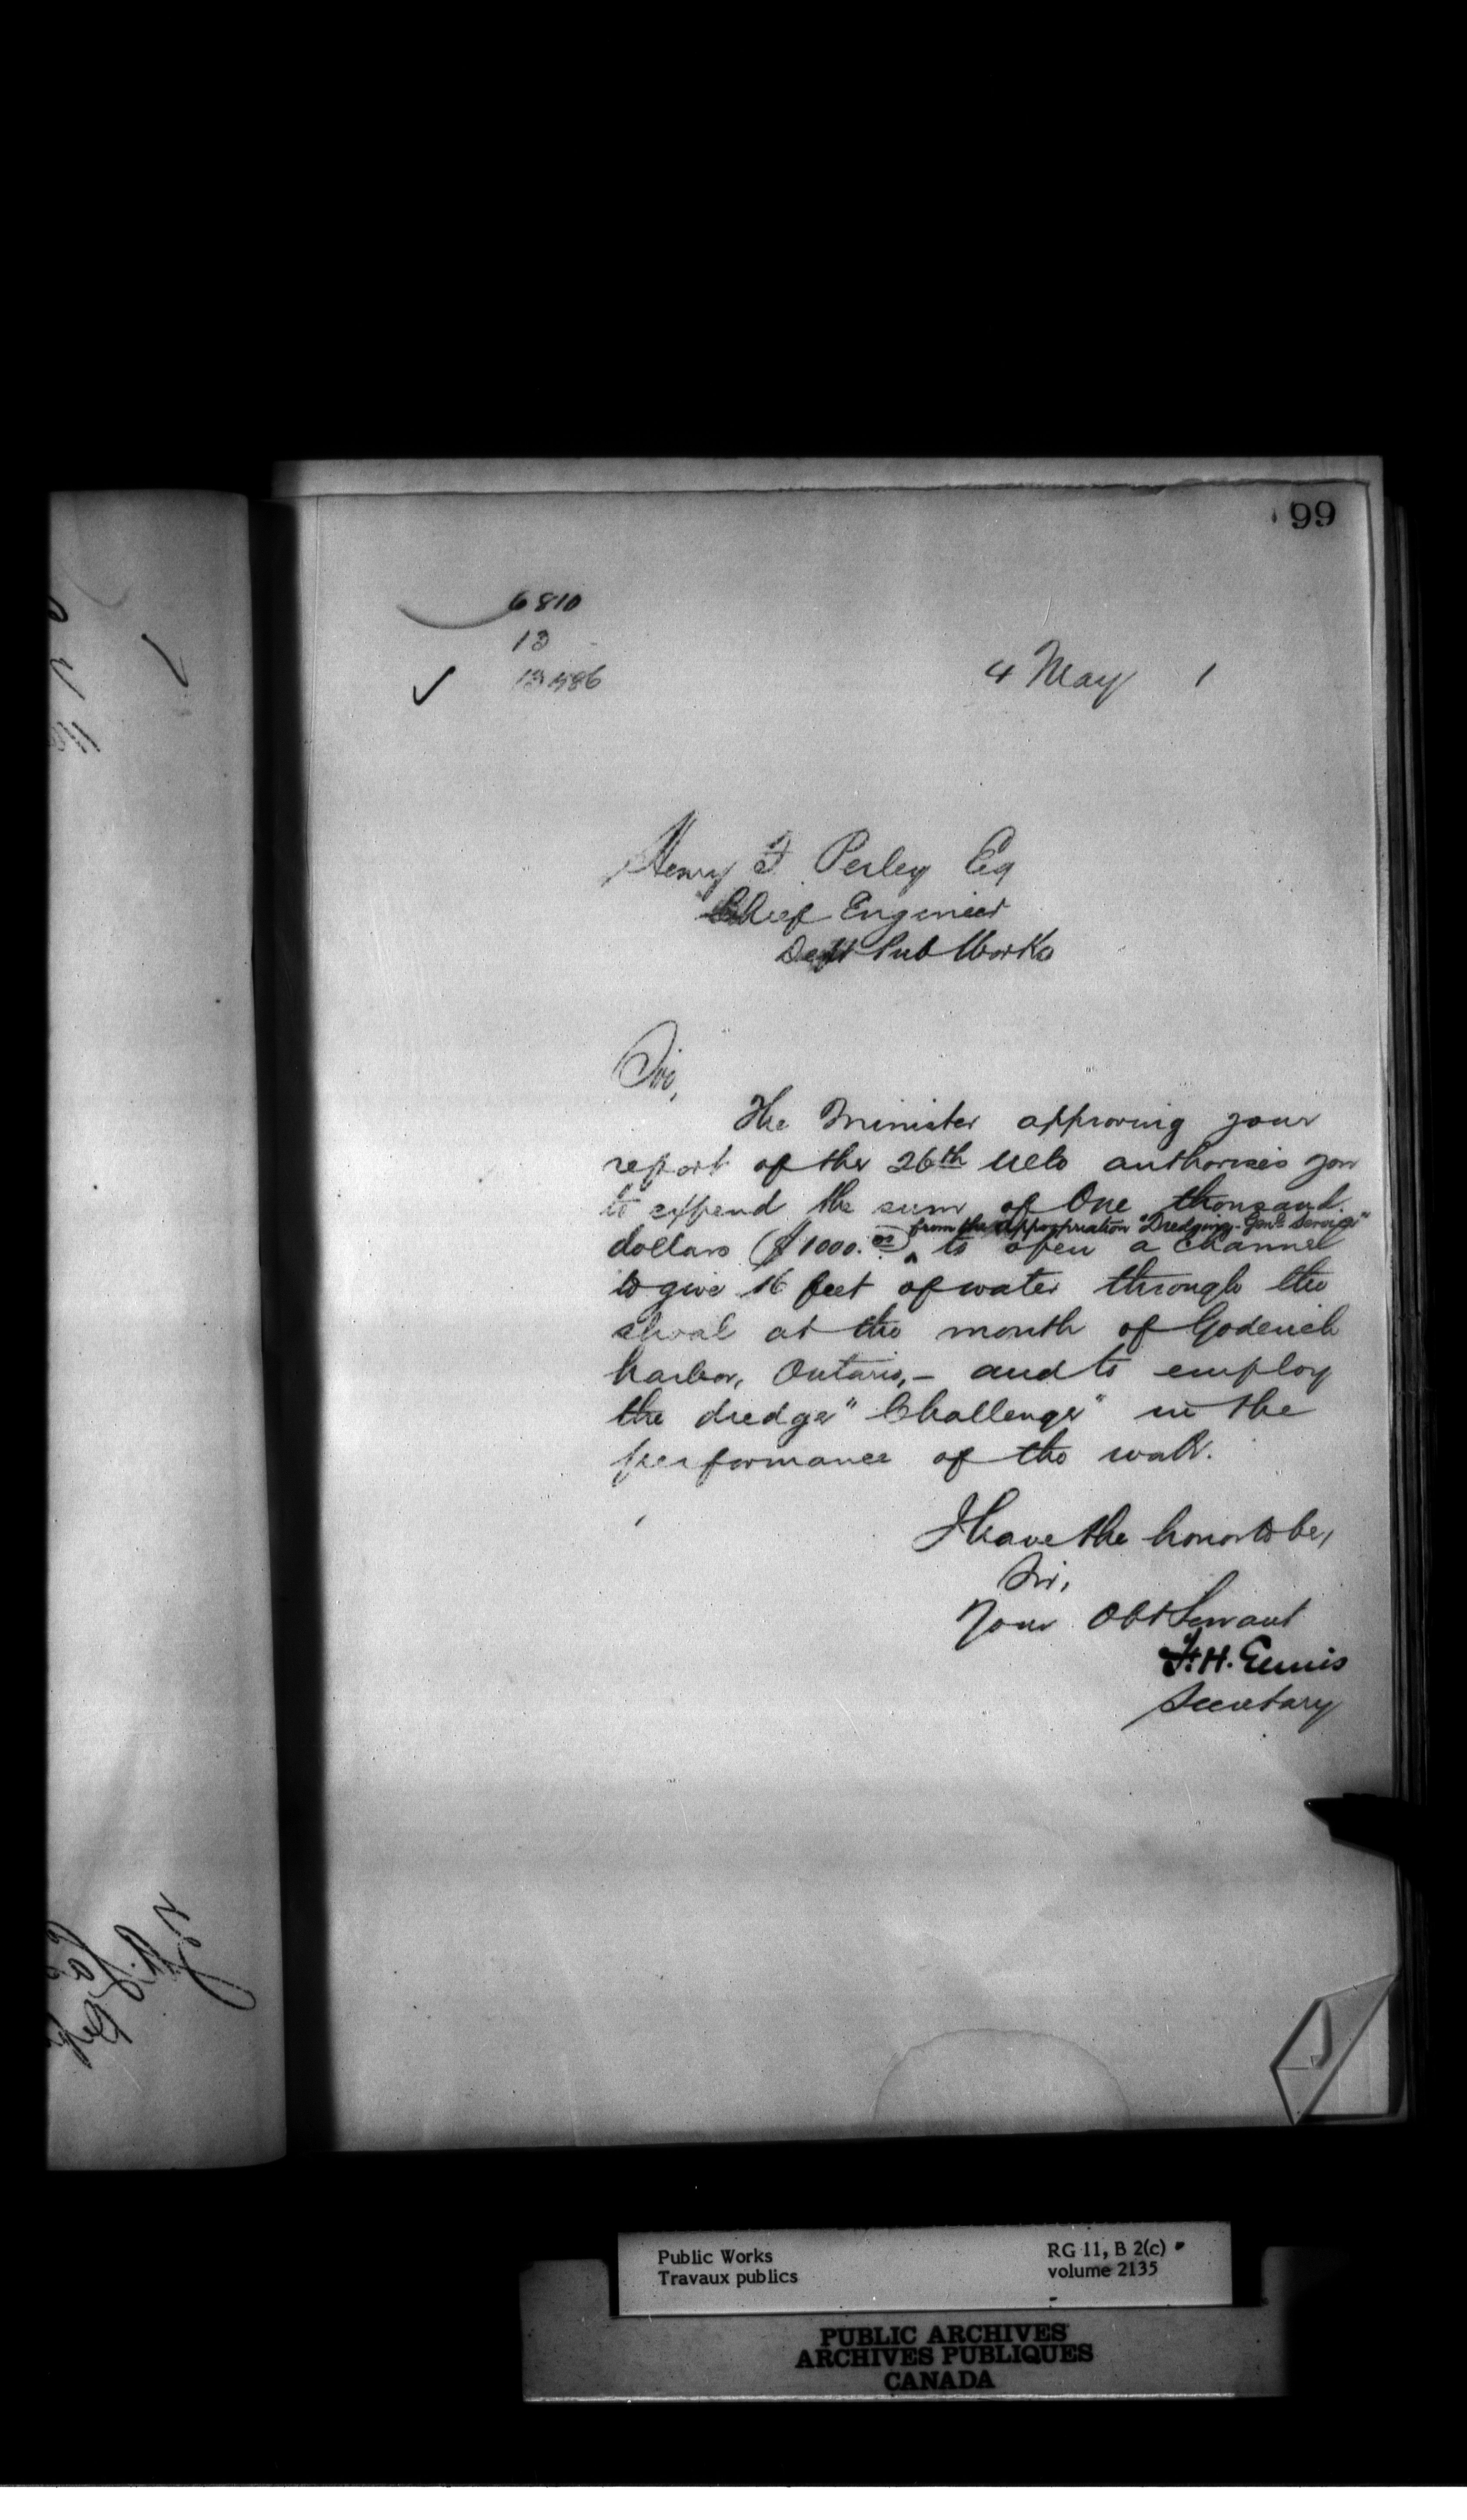 99
6810
13
4 May 1
Henry F. Perley Esq
Chief Engineer
Dept Pub Works
Sir,
The Minister approving your
report of the 26th ulto authorises you
to expend the sum of One thousand
from the appropriation "Dredging - Genl Service"
dollars ($1000.00) ^ to open a channel
to give 16 feet of water through the
shoal at the mouth of Goderich
harbor, Ontario, - and to employ
the dredge "Challenge" in the
performance of the work.
I have the honor to be,
Sir,
Your Obt Servant
F. H. Ennis
Secretary
Public Works
Travaux publics
RG 11, B 2(c)
volume 2135
PUBLIC ARCHIVES
ARCHIVES PUBLIQUES
CANADA